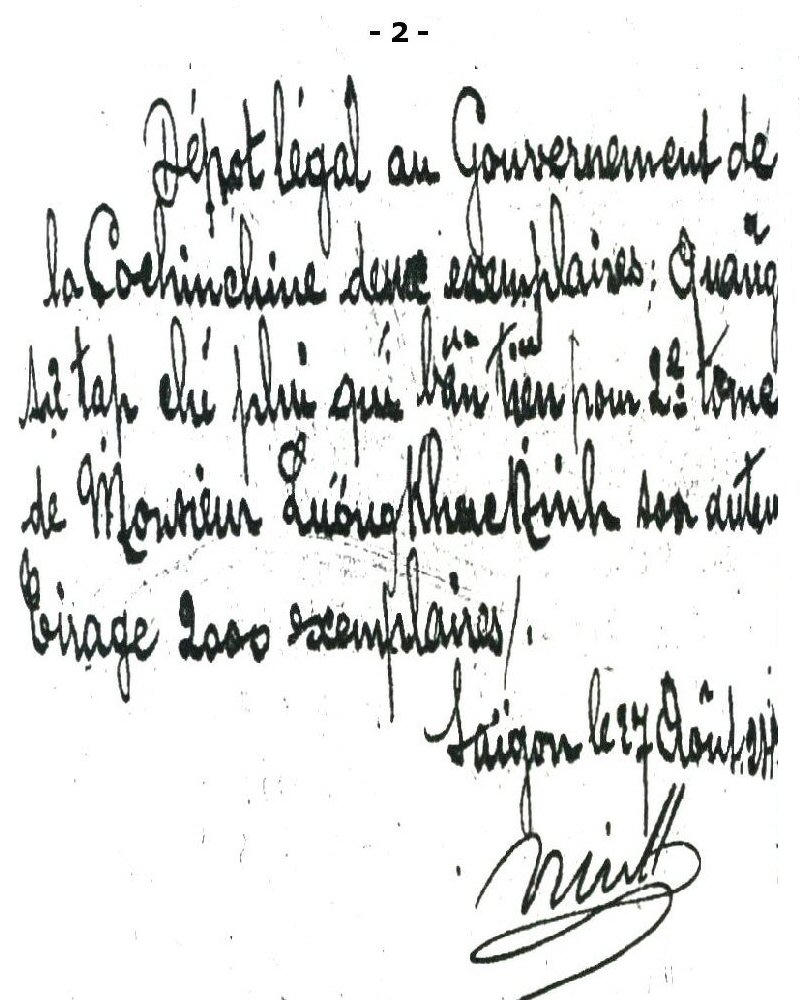 - 2 -
Dépot légal au Gouvernement de
la Cochinchine deux exemplaires: Quảng
sự tap chí phú qúi bần tiện pour 2e tome
de Monsieur Lương Khac Ninh son auteu
tirage 2000 exemplaires/.
Saïgon le 27 Août 24
Ninh